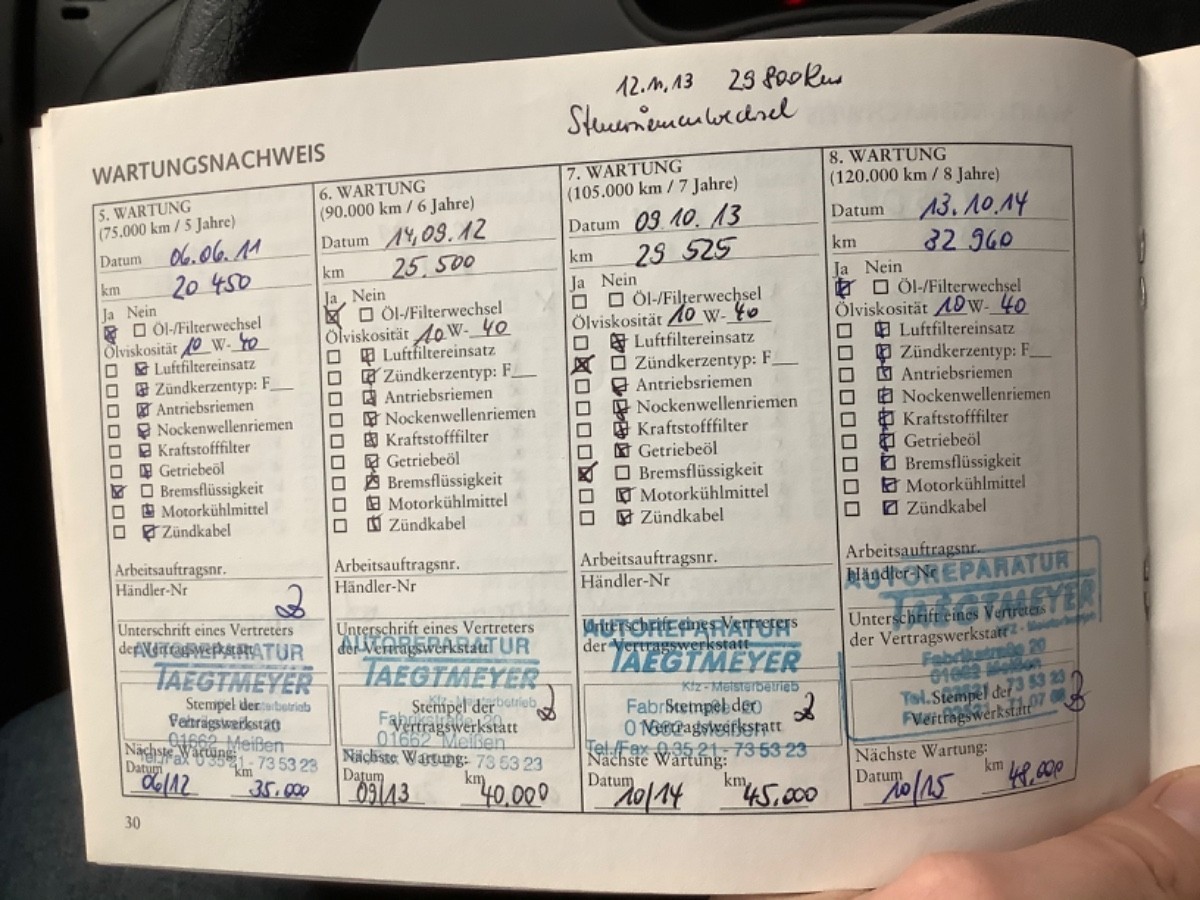 12.11.13 29 800 km
Steuerriemenwechsel
WARTUNGSNACHWEIS
5. WARTUNG
(75.000 km / 5 Jahre)
Datum 06.06.11
km 20 450
Ja Nein
Öl-/Filterwechsel
Ölviskosität 10 W- 40
Luftfiltereinsatz
Zündkerzentyp: F
Antriebsriemen
Nockenwellenriemen
Kraftstofffilter
Getriebeöl
Bremsflüssigkeit
Motorkühlmittel
Zündkabel
Arbeitsauftragsnr.
Händler-Nr
Unterschrift eines Vertreters
der Vertragswerkstatt
AUTOREPARATUR
TAEGTMEYER
Stempel der
Vertragswerkstatt
01662 Meißen
Tel./Fax 0 35 21 - 73 53 23
Nächste Wartung:
Datum km
06/12 35.000
6. WARTUNG
(90.000 km / 6 Jahre)
Datum 14.09.12
km 25.500
Ja Nein
Öl-/Filterwechsel
Ölviskosität 10 W- 40
Luftfiltereinsatz
Zündkerzentyp: F
Antriebsriemen
Nockenwellenriemen
Kraftstofffilter
Getriebeöl
Bremsflüssigkeit
Motorkühlmittel
Zündkabel
Arbeitsauftragsnr.
Händler-Nr
Unterschrift eines Vertreters
der Vertragswerkstatt
AUTOREPARATUR
TAEGTMEYER
Kfz-Meisterbetrieb
Stempel der
Fabrikstraße 20
Vertragswerkstatt
01662 Meißen
73 53 23
Nächste Wartung:
Datum km
09/13 40.000
7. WARTUNG
(105.000 km / 7 Jahre)
Datum 09.10.13
km 29 525
Ja Nein
Öl-/Filterwechsel
Ölviskosität 10 W- 40
Luftfiltereinsatz
Zündkerzentyp: F
Antriebsriemen
Nockenwellenriemen
Kraftstofffilter
Getriebeöl
Bremsflüssigkeit
Motorkühlmittel
Zündkabel
Arbeitsauftragsnr.
Händler-Nr
Unterschrift eines Vertreters
AUTOREPARATUR
der Vertragswerkstatt
TAEGTMEYER
Kfz-Meisterbetrieb
Stempel der
Vertragswerkstatt
Tel./Fax 0 35 21 - 73 53 23
Nächste Wartung:
Datum km
10/14 45.000
8. WARTUNG
(120.000 km / 8 Jahre)
Datum 13.10.14
km 32 960
Ja Nein
Öl-/Filterwechsel
Ölviskosität 10 W- 40
Luftfiltereinsatz
Zündkerzentyp: F
Antriebsriemen
Nockenwellenriemen
Kraftstofffilter
Getriebeöl
Bremsflüssigkeit
Motorkühlmittel
Zündkabel
Arbeitsauftragsnr.
AUTOREPARATUR
Händler-Nr
TAEGTMEYER
Unterschrift eines Vertreters
der Vertragswerkstatt
Fabrikstraße 20
01662 Meißen
Stempel der
Vertragswerkstatt
Nächste Wartung:
Datum km
10/15 48.000
30